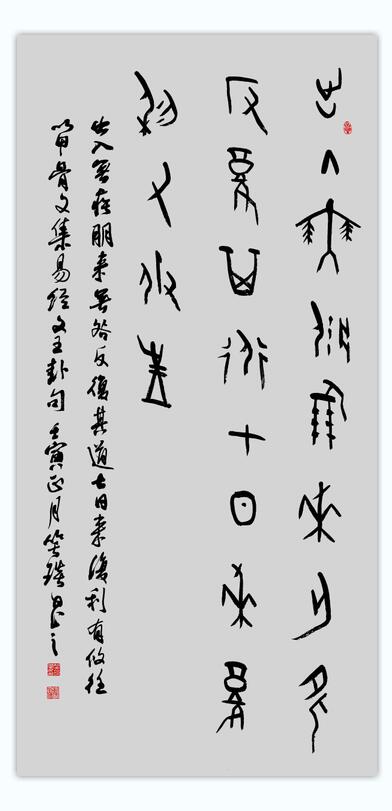 出入無疾朋來亡咎
反復其道七日來復
利有攸往
出入無疾朋来無咎反復其道七日来復利有攸往
以甲骨文集易经文王卦句 壬寅正月